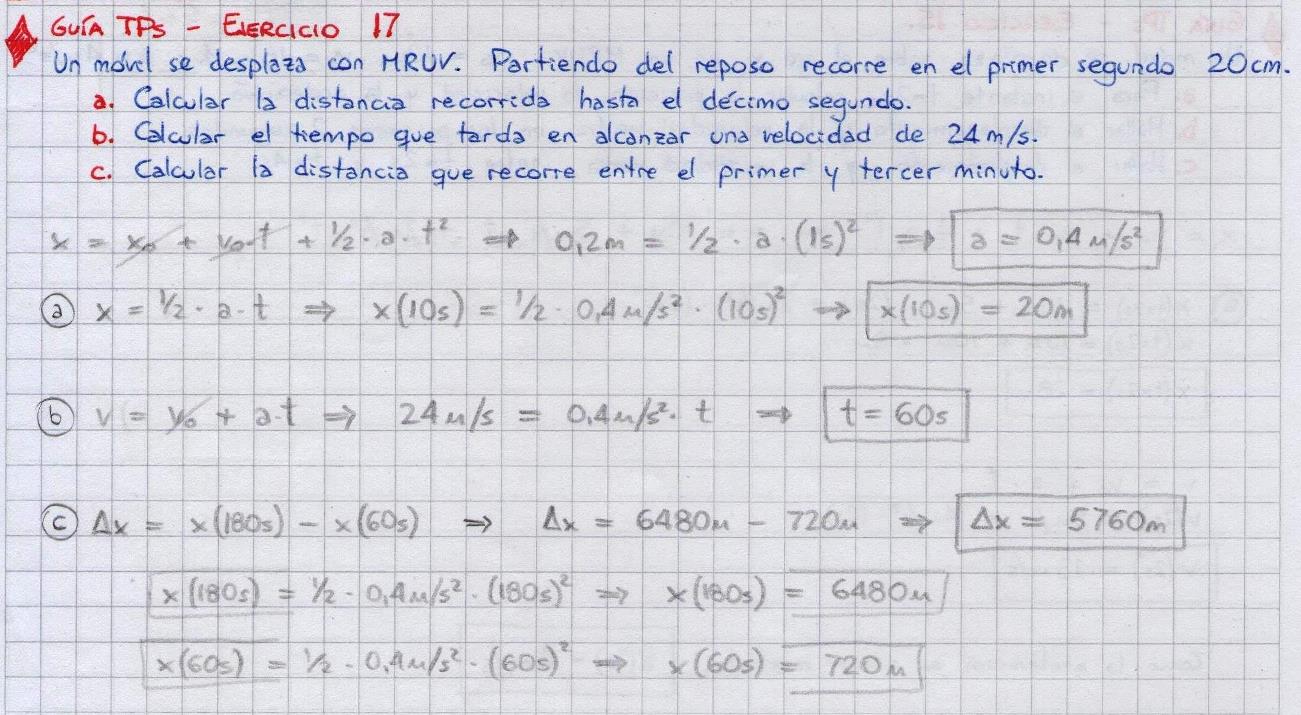 GUÍA TPs - EJERCICIO 17
Un móvil se desplaza con MRUV. Partiendo del reposo recorre en el primer segundo 20cm.
a. Calcular la distancia recorrida hasta el décimo segundo.
b. Calcular el tiempo que tarda en alcanzar una velocidad de 24 m/s.
c. Calcular la distancia que recorre entre el primer y tercer minuto.
x = x₀ + v₀·t + 1/2 · a · t² ⇒ 0,2m = 1/2 · a · (1s)² ⇒ a = 0,4 m/s²
ⓐ x = 1/2 · a · t ⇒ x(10s) = 1/2 · 0,4 m/s² · (10s)² ⇒ x(10s) = 20m
ⓑ v = v₀ + a·t ⇒ 24 m/s = 0,4 m/s² · t ⇒ t = 60s
ⓒ Δx = x(180s) - x(60s) ⇒ Δx = 6480m - 720m ⇒ Δx = 5760m
x(180s) = 1/2 · 0,4 m/s² · (180s)² ⇒ x(180s) = 6480m
x(60s) = 1/2 · 0,4 m/s² · (60s)² ⇒ x(60s) = 720m